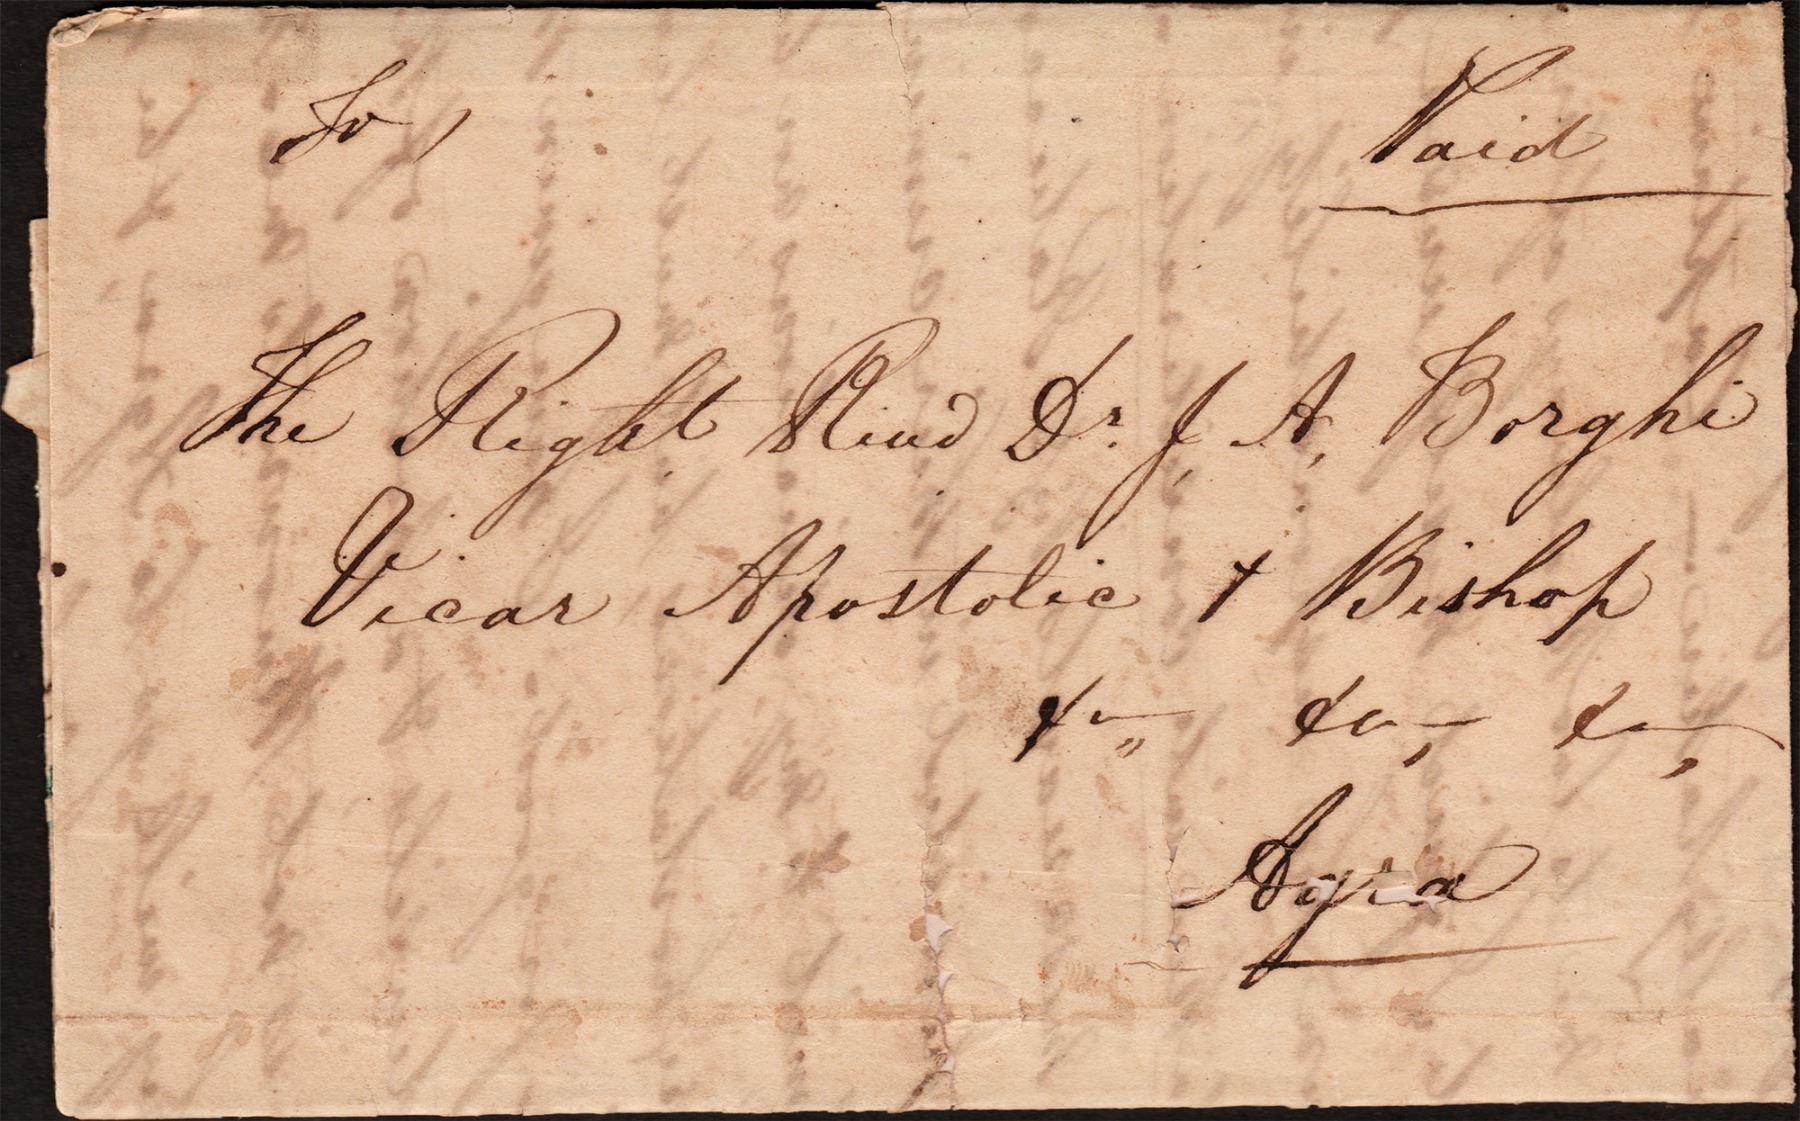 To, Paid
The Right Revd Dr. J, A, Borghi
Vicar Apostolic & Bishop
&c,, &c, &c,
Agra